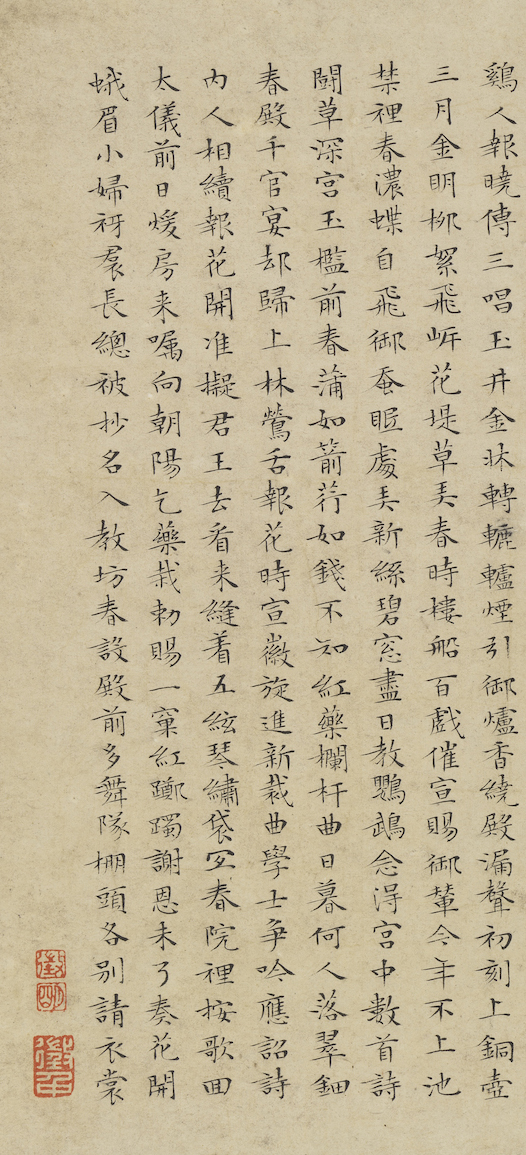 鷄人報曉傳三唱玉井金牀轉轆轤煙引御爐香繞殿漏聲初刻上銅壺
三月金明柳絮飛岸花堤草弄春時樓船百戲催宣賜御輦今年不上池
禁裡春濃蝶自飛御蚕眠處弄新絲碧窓盡日教鸚鵡念得宮中數首詩
鬪草深宮玉檻前春蒲如箭荇如錢不知紅藥欄杆曲日暮何人落翠鈿
春殿千官宴却歸上林鶯舌報花時宣徽旋進新裁曲學士爭吟應詔詩
內人相續報花開准擬君王去看来縫着五絃琴繡袋宜春院裡按歌回
太儀前日煖房来囑向朝陽乞藥栽勅賜一窠紅躑躅謝恩未了奏花開
蛾眉小婦砑裠長總被抄名入教坊春設殿前多舞隊棚頭各別請衣裳
徵明
徵仲